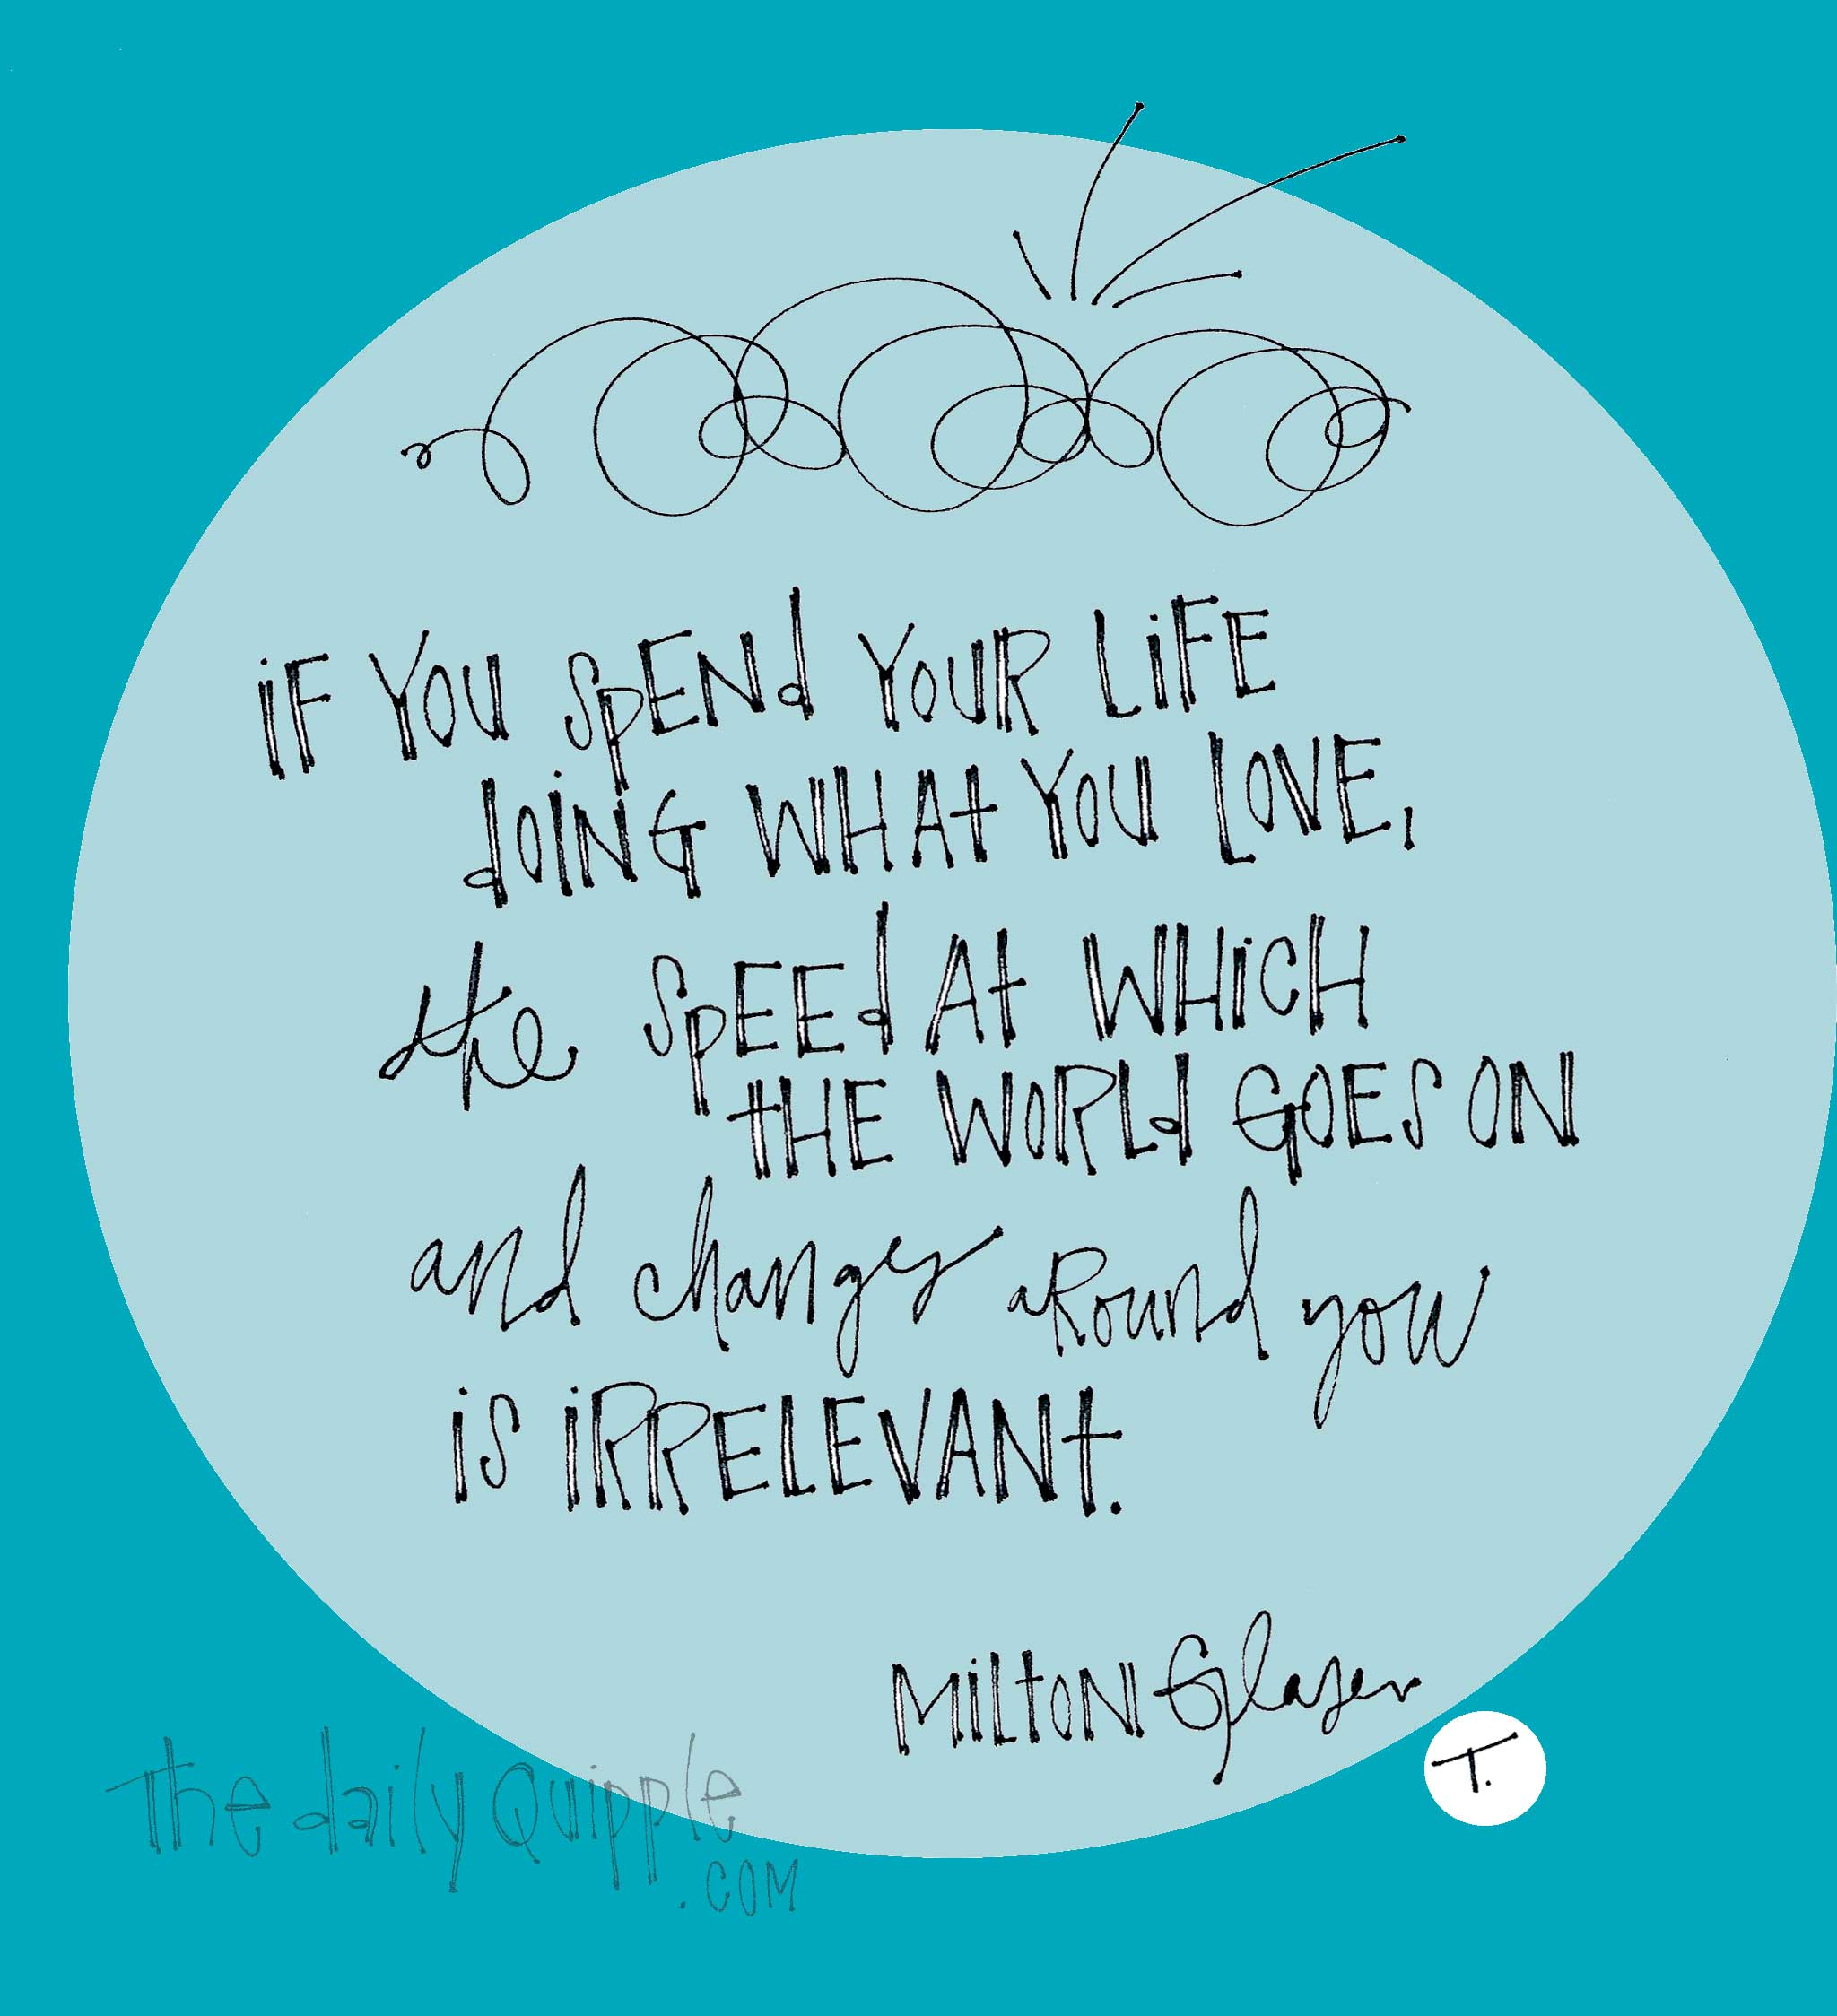 iF YOU SPENd YOUR LiFE
dOING WHAt YOU LOVE,
the SPEEd At WHiCH
tHE WORLd GOES ON
and changes aRound you
iS iRRELEVANt.
MiltON Glaser
T.
The daily Quipple
.COM